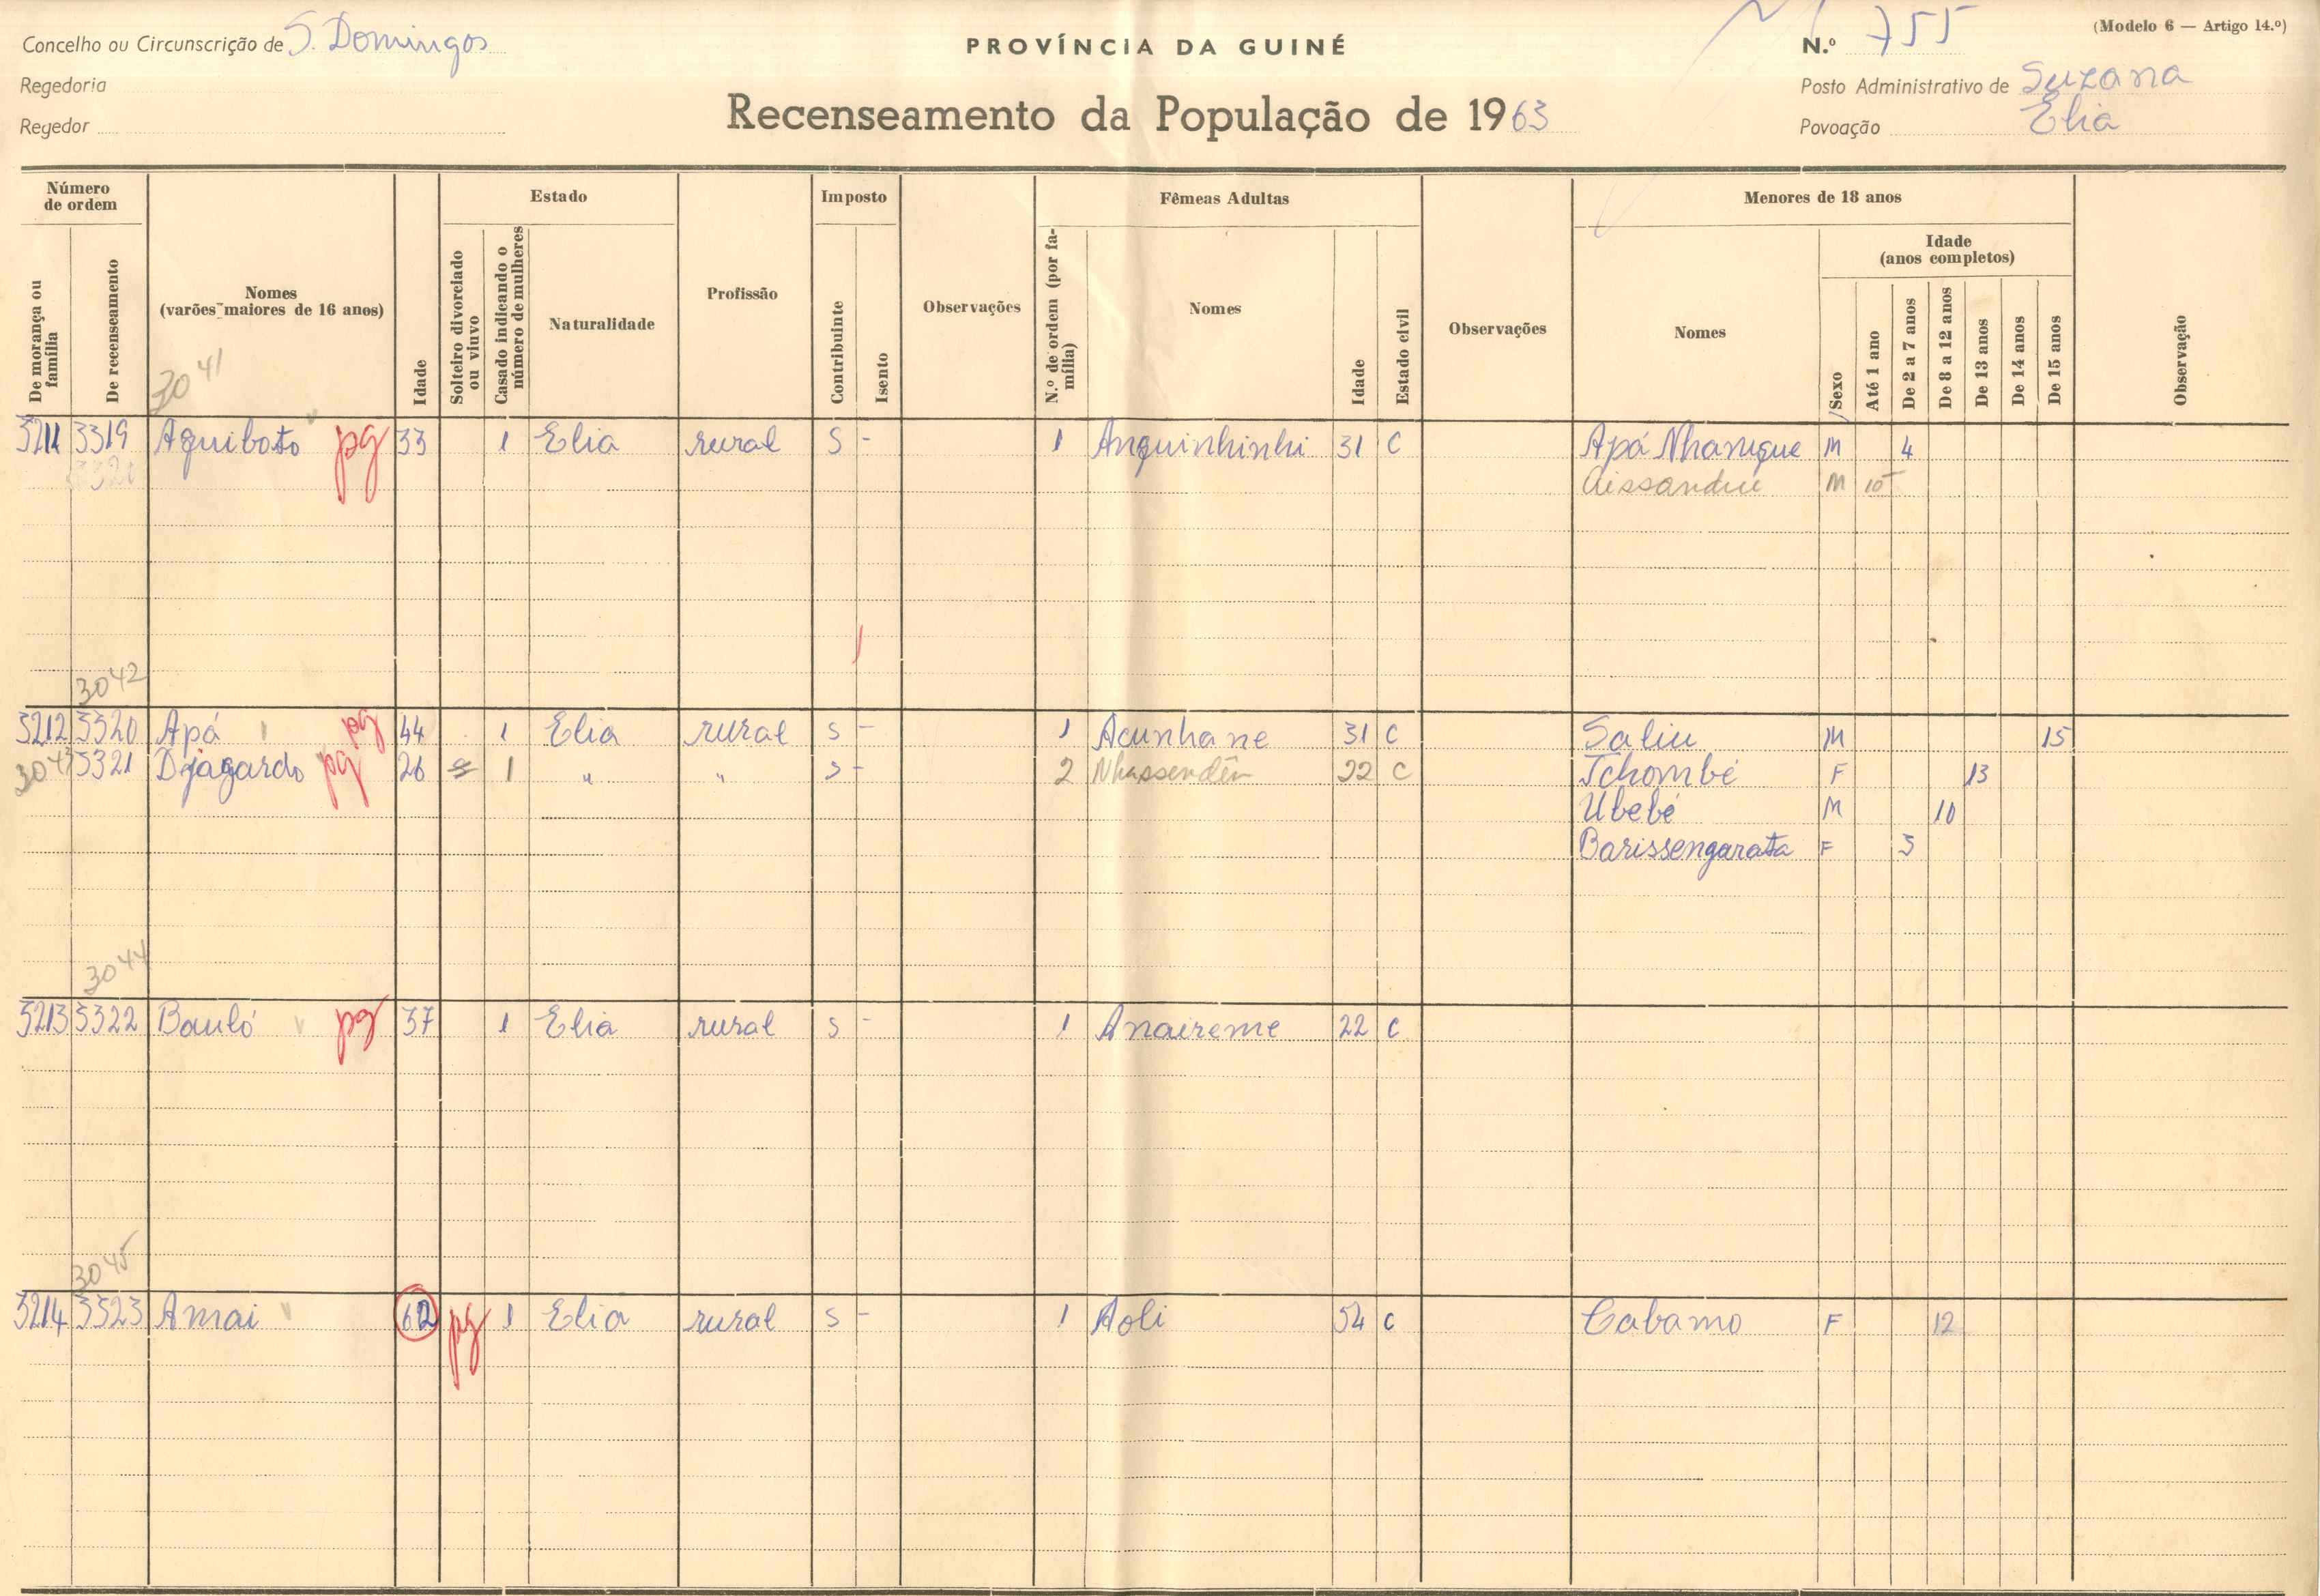 Concelho ou Circunscrição de S. Domingos
PROVÍNCIA DA GUINÉ
N.º 755
(Modelo 6 — Artigo 14.º)
Regedoria
Posto Administrativo de Suzana
Regedor
Recenseamento da População de 1963
Povoação Elia
Número de ordem
De morança ou família
De recenseamento
Nomes (varões maiores de 16 anos)
Idade
Estado
Solteiro divorciado ou viuvo
Casado indicando o número de mulheres
Naturalidade
Profissão
Imposto
Contribuinte
Isento
Observações
Fêmeas Adultas
N.º de ordem (por família)
Nomes
Idade
Estado civil
Observações
Menores de 18 anos
Nomes
Sexo
Idade (anos completos)
Até 1 ano
De 2 a 7 anos
De 8 a 12 anos
De 13 anos
De 14 anos
De 15 anos
Observação
3041
3211 3319 Aquiboto pg 33 1 Elia rural S - 1 Anquinhinhi 31 C Apá Nhanque M 4
Aissandui M 10
3042
3212 3320 Apá pg 44 1 Elia rural S - 1 Acunhane 31 C Saliu M 15
3043 3321 Djagardo pg 26 1 " " S - 2 Nhassendên 22 C Tchombé F 13
Ubebé M 10
Barissengarata F 3
3044
3213 3322 Bauló pg 37 1 Elia rural S - 1 Anaireme 22 C
3045
3214 3323 Amai 62 pg 1 Elia rural S - 1 Aoli 54 C Cabamo F 12